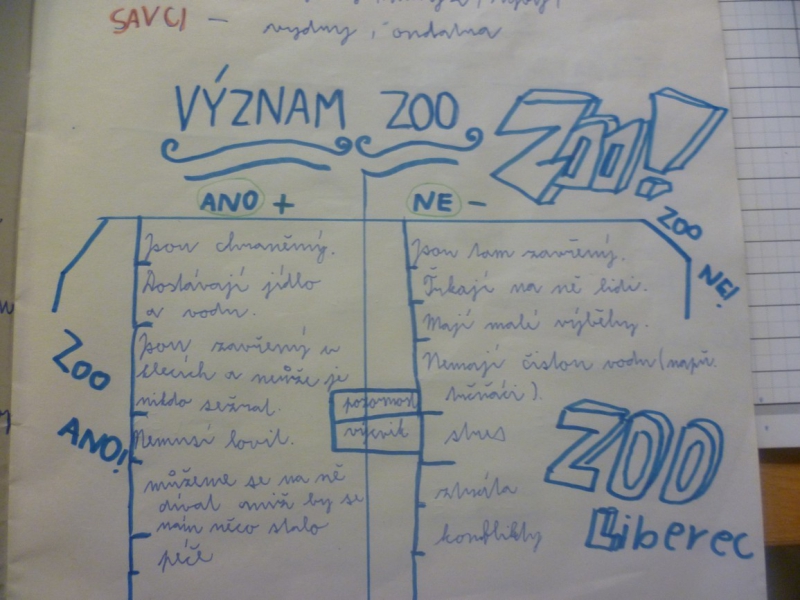 SAVCI - vydry, ondatra
VÝZNAM ZOO
Zoo!
ANO +
NE -
ZOO
NE!
jsou chraněný.
Dostávají jídlo
a vodu.
jsou zavřený v
klecích a nemůže je
nikdo sežrat.
Nemusí lovit.
můžeme se na ně
dívat aniž by se
nám něco stalo
péče
ZOO
ANO!
pozornost
výcvik
jsou tam zavřený.
Ťukají na ně lidi.
Mají malé výběhy.
Nemají čistou vodu (např.
tučňáci).
stres
ztráta
konflikty
ZOO
Liberec